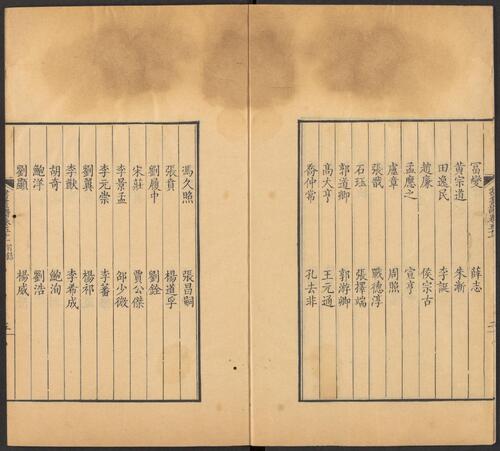 冨燮 薛志
黄宗道 朱漸
田逸民 李誕
趙廉 侯宗古
孟應之 宣亨
盧章 周照
張戩 戰德淳
石珏 張擇端
郭道卿 郭游卿
高大亨 王元通
喬仲常 孔去非
馮久照 張昌嗣
張賁 楊道孚
劉履中 劉銓
宋莊 賈公傑
李景孟 邵少微
李元崇 李蕃
劉翼 楊祁
李猷 李希成
胡奇 鮑洵
鮑洋 劉浩
劉顯 楊威